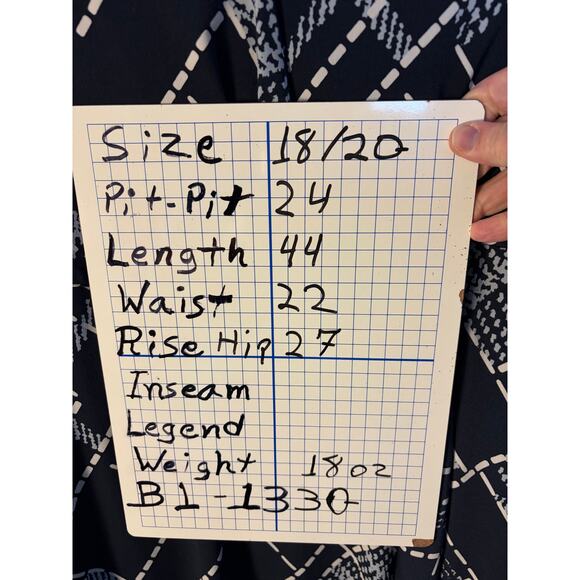 Size 18/20
Pit-Pit 24
Length 44
Waist 22
Rise Hip 27
Inseam
Legend
Weight 18oz
B1-1330